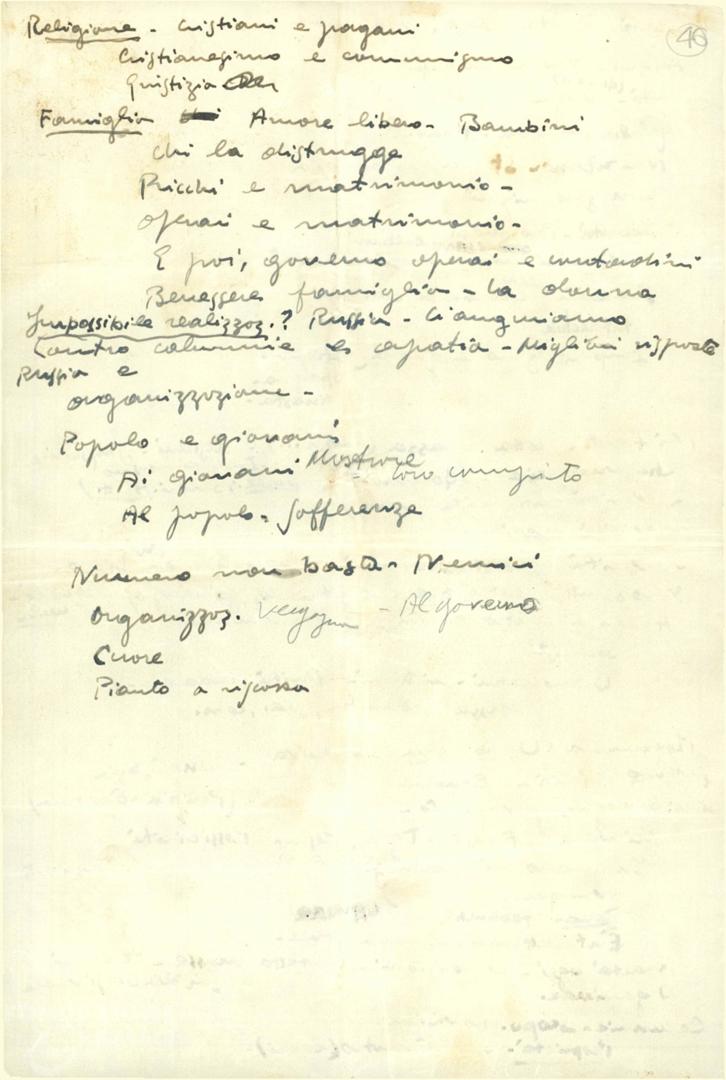 46
Religione - Cristiani e pagani
Cristianesimo e comunismo
Giustizia
Famiglia Amore libero - Bambini
Chi la distrugge
Ricchi e matrimonio -
operai e matrimonio -
E poi, governo operai e contadini
Benessere famiglia - la donna
Impossibile realizzaz.? Russia -
Contro calunnie e apatia - Migliori risposte
Russia e
organizzazione -
Popolo e giovani
Ai giovani Mostrare loro compito
Al popolo - Sofferenze
Numero non basta - Nemici
Organizzaz. - Al governo
Cuore
Pianto a riscossa